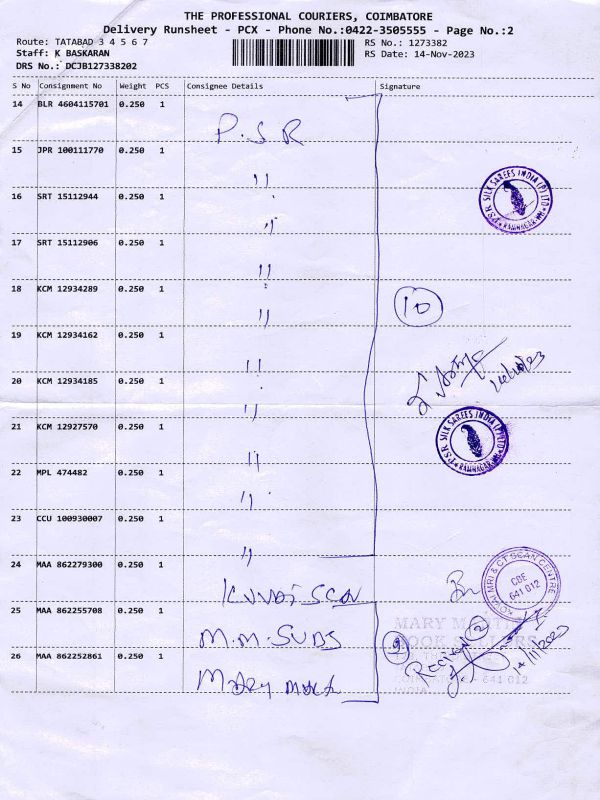 THE PROFESSIONAL COURIERS, COIMBATORE
Delivery Runsheet - PCX - Phone No.:0422-3505555 - Page No.:2
Route: TATABAD 3 4 5 6 7
RS No.: 1273382
Staff: K BASKARAN
RS Date: 14-Nov-2023
DRS No.: DCJB127338202
S No Consignment No Weight PCS Consignee Details Signature
14 BLR 4604115701 0.250 1 P.S.R
15 JPR 100111770 0.250 1 "
16 SRT 15112944 0.250 1 "
17 SRT 15112906 0.250 1 "
18 KCM 12934289 0.250 1 "
19 KCM 12934162 0.250 1 "
20 KCM 12934185 0.250 1 "
21 KCM 12927570 0.250 1 "
22 MPL 474482 0.250 1 "
23 CCU 100930007 0.250 1 "
24 MAA 862279300 0.250 1 KOVAI SCAN
25 MAA 862255708 0.250 1 M.M.SUBS
26 MAA 862252861 0.250 1 MARY
PSR SILK SAREES INDIA (P) LTD
RAMNAGAR
10
PSR SILK SAREES INDIA (P) LTD
RAMNAGAR
KOVAI MRI & CT SCAN CENTRE
CBE
641 012
MARY MARTIN
BOOK SELLERS
2
14/11/2023
641 012
INDIA